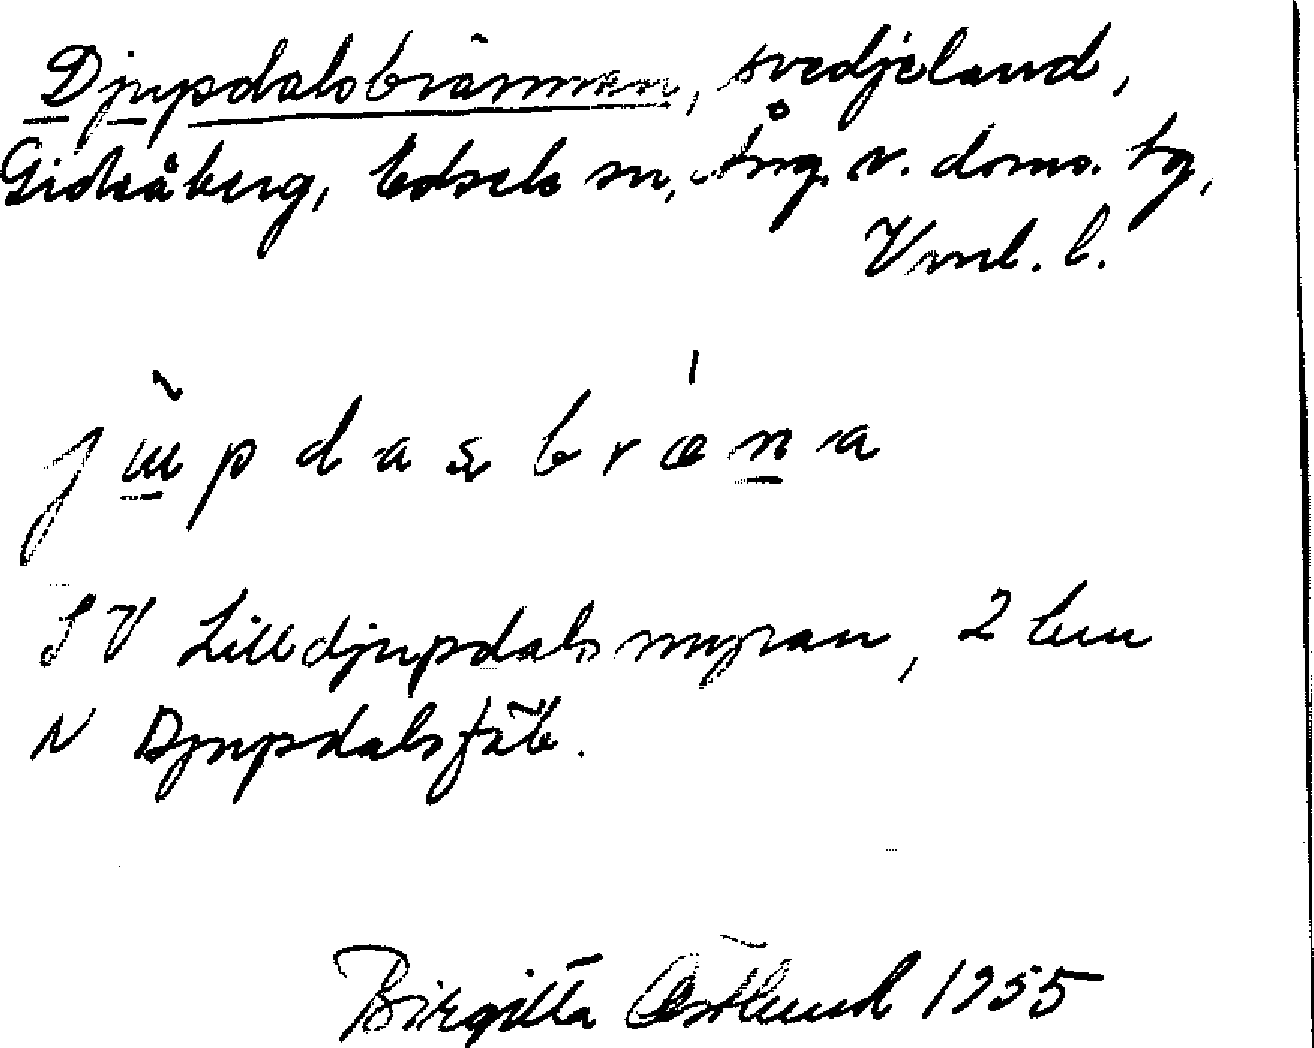 Djupdalsbrännan, svedjeland,
Gideåberg, Edsele sn, Ång. v. doms. tg,
Vnl. l.
jʉpdasbræna
SV Lilldjupdalsmyran, 2 km
N Djupdalsfäb.
Birgitta Östlund 1955